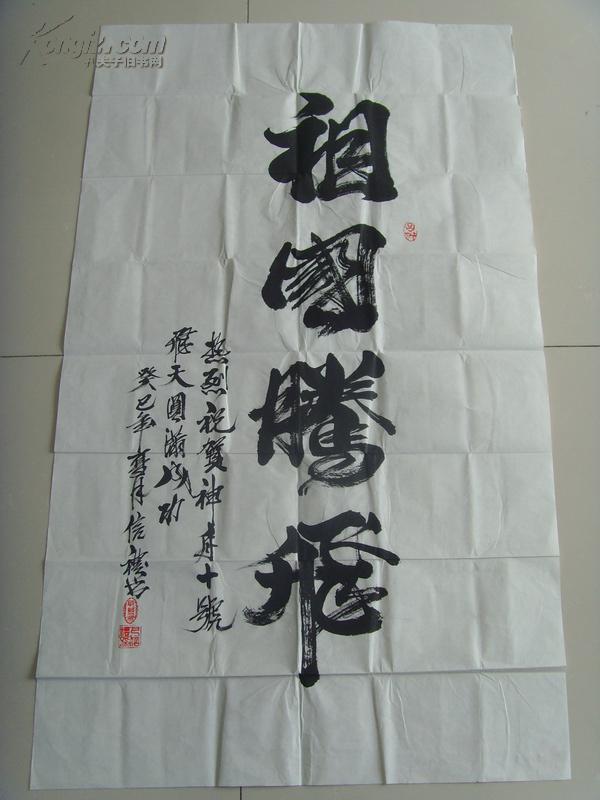 祖國騰飛
热烈祝賀神舟十號
飛天圓滿成功
癸巳年夏月信
Kongfz.com
孔夫子旧书网